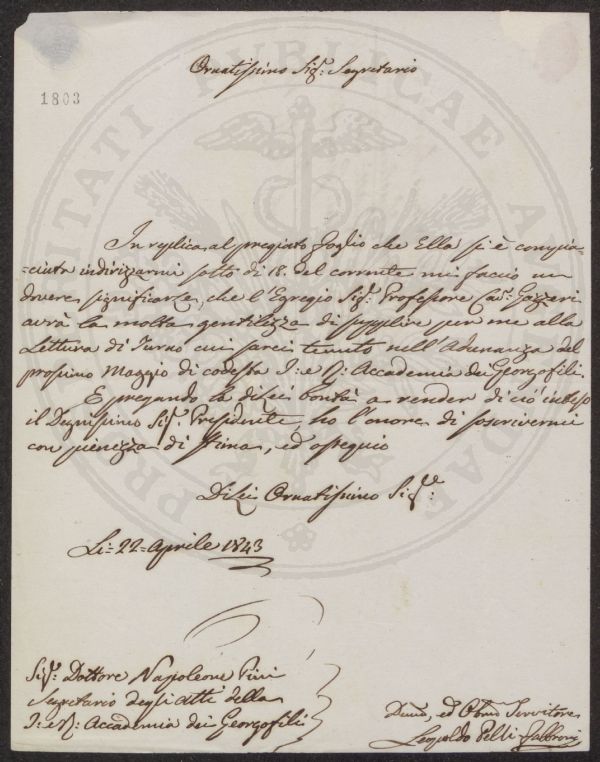 Ornatissimo Sigr: Segretario
1803
PROSPERITATI PUBLICAE AUGENDAE
In replica al pregiato foglio che Ella si è compia-
=ciuta indirizzarmi sotto dì 18. del corrente mi faccio un
dovere significarle, che l'Egregio Sigr: Professore Cavr: Gazzeri
avrà la molta gentilezza di supplire per me alla
Lettura di Turno cui sarei tenuto nell'Adunanza del
prossimo Maggio di codesta I: e R: Accademia dei Georgofili.
E pregando la di Lei bontà a render di ciò inteso
il Degnissimo Sigr: Presidente, ho l'onore di soscrivermi
con pienezza di stima, ed ossequio
Di Lei Ornatissimo Sigre:
Li= 22= Aprile 1843
Sigr: Dottore Napoleone Pini
Segretario degli Atti della
I: e R: Accademia dei Georgofili
Devmo, ed Obbmo Servitore
Leopoldo Pelli-Fabbroni